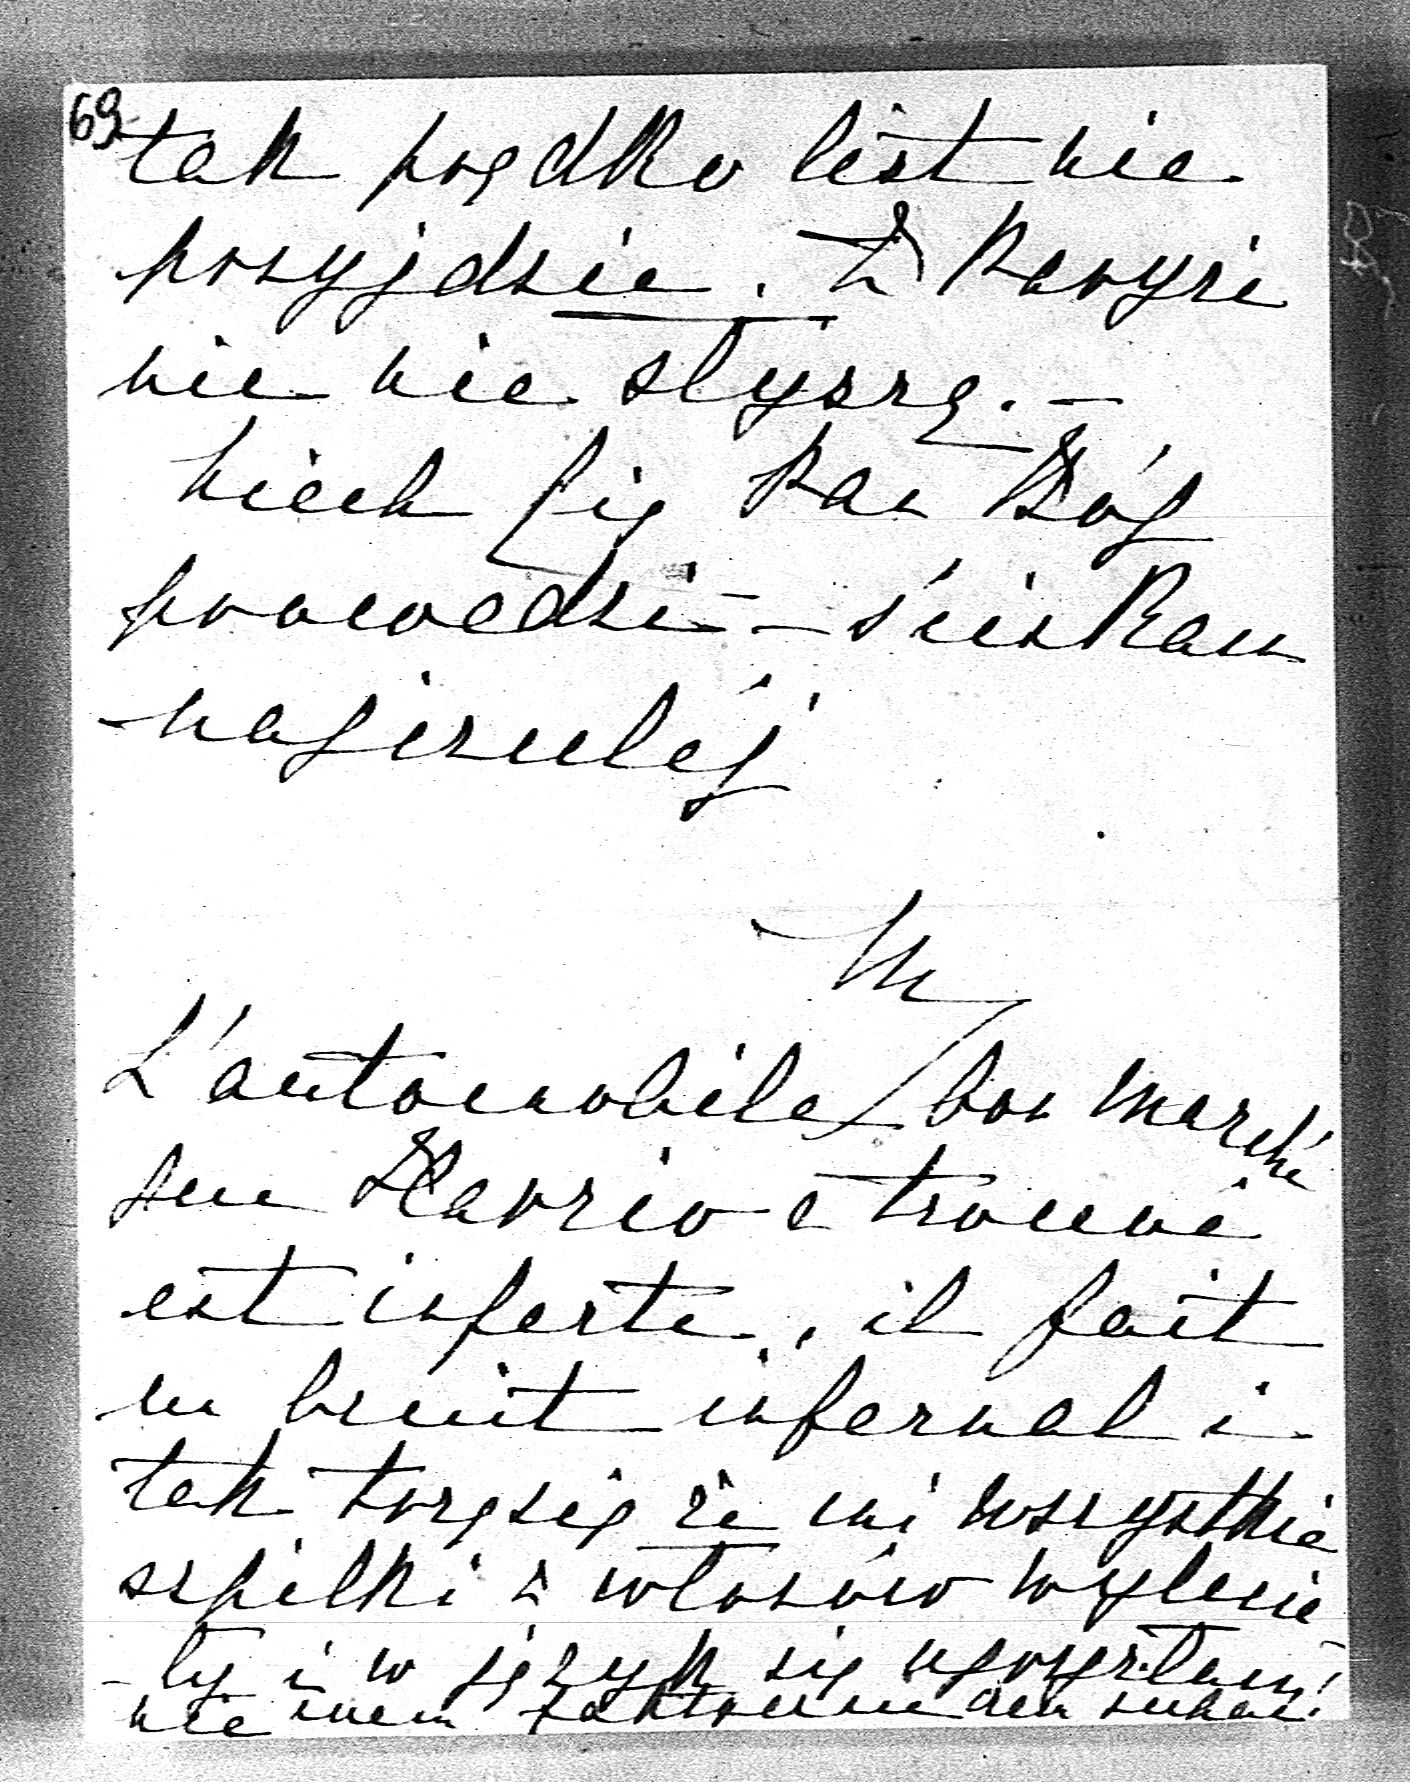 69
tak prędko list nie
przyjdzie. Z Paryża
nic nie słyszę. —
Niech Cię Pan Bóg
prowadzi — ściskam
najczulej
M
L'automobile bon marché
que Harrio a trouvé
est infecte, il fait
un bruit infernal i
tak trzęsie że mi wszystkie
szpilki z włosów wylecia
-ły i w język się ugryzłam
nie wiem